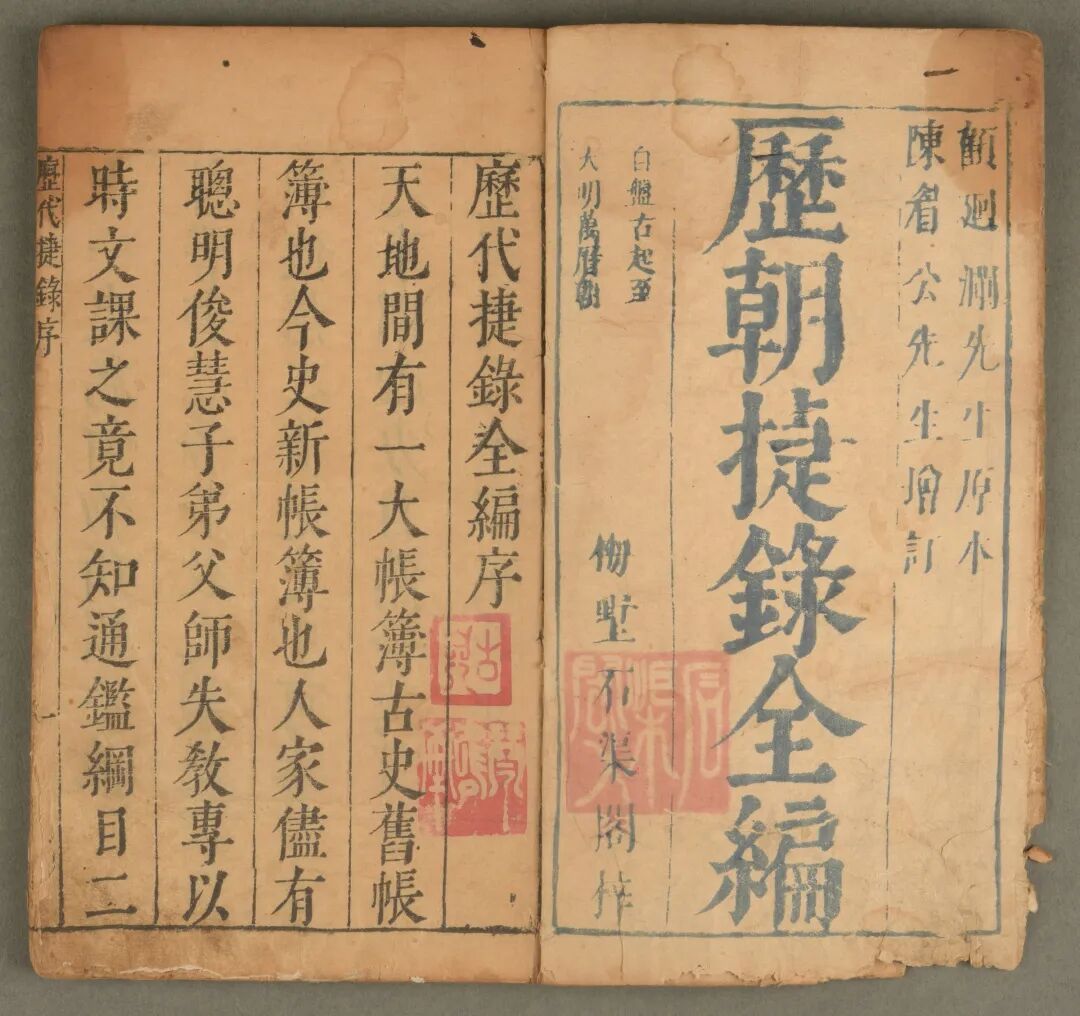 顧廻瀾先生原本
陳眉公先生增訂
歷朝捷錄全編
自盤古起至
大明萬曆朝
石渠閣梓
歷代捷錄全編序
天地間有一大帳簿古史舊帳
簿也今史新帳簿也人家儘有
聰明俊慧子弟父師失教專以
時文課之竟不知通鑑綱目二
歷代捷錄序